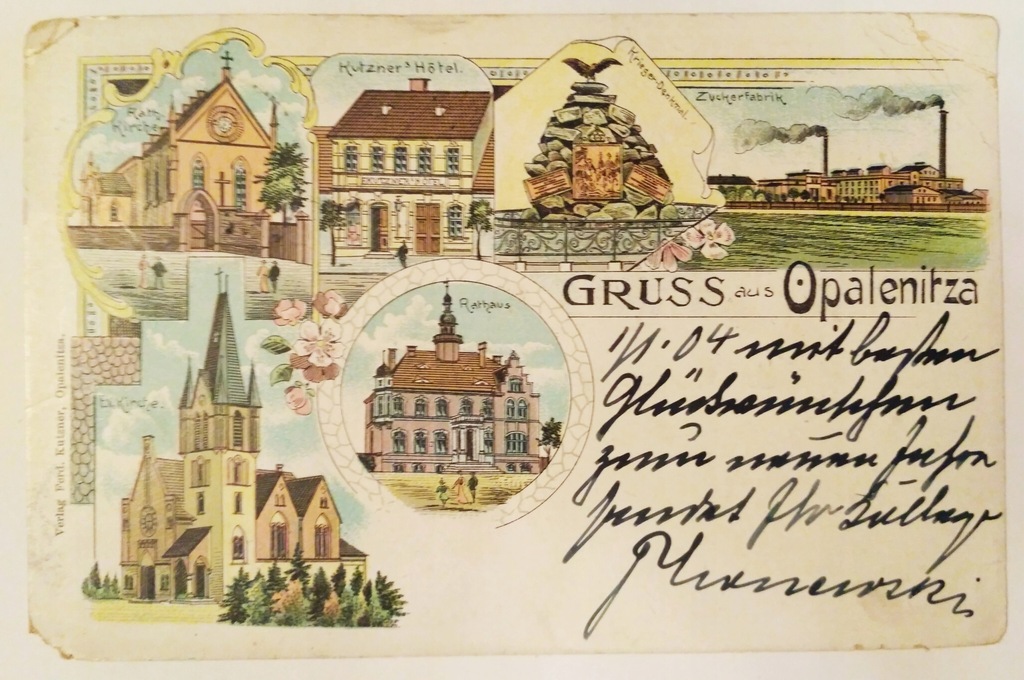 Kath. Kirche
Kutzner's Hôtel.
Krieger-Denkmal.
Zuckerfabrik
GRUSS aus Opalenitza
Rathaus
Ev. Kirche.
Verlag Ferd. Kutzner, Opalenitza.
1/1. 04 mit besten
Glückwünschen
zum neuen Jahre
sendet Ihr Kollege